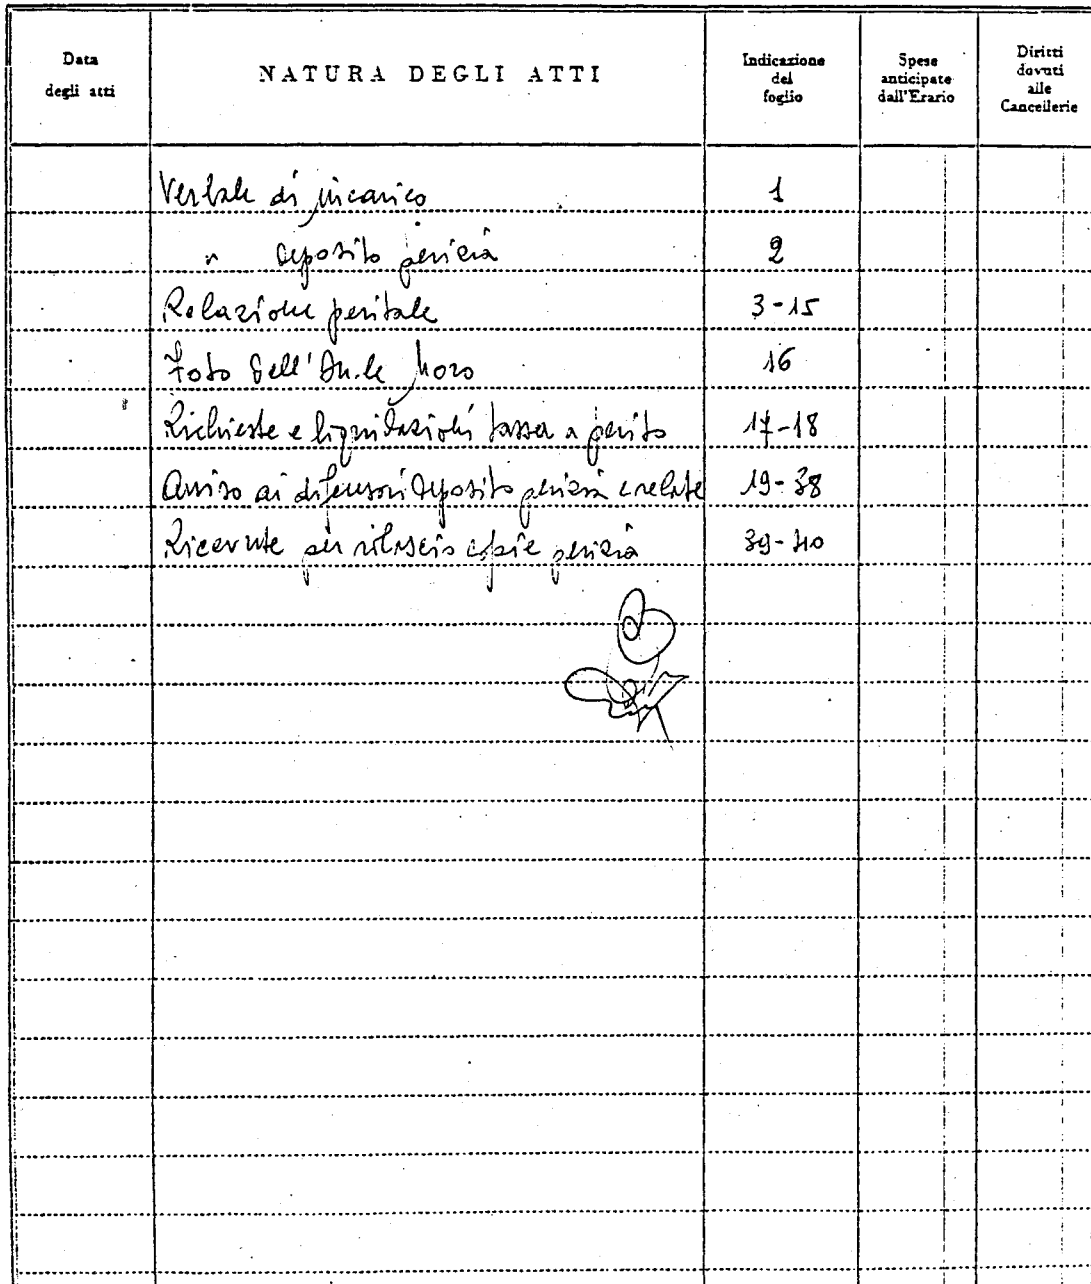 Data
degli atti
NATURA DEGLI ATTI
Indicazione
del
foglio
Spese
anticipate
dall'Erario
Diritti
dovuti
alle
Cancellerie
Verbale di incarico 1
" deposito perizia 2
Relazione peritale 3-15
Foto dell'On.le Moro 16
Richieste e liquidazioni tassa a perito 17-18
Avviso ai difensori deposito perizia e relate 19-38
Ricevute per rilascio copie perizia 39-40